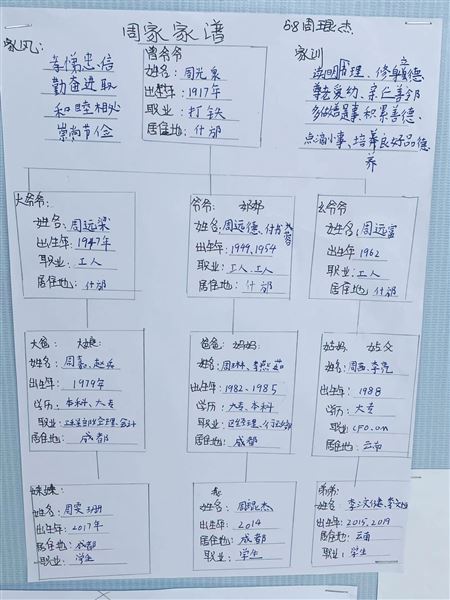 周家家谱
68周琨杰
家风:
孝悌忠信
勤奋进取
和睦相处
崇尚节俭
家训
读明理、修身立德
尊老爱幼、亲仁善邻
多做善事积累善德、
点滴小事、培养良好品德
曾爷爷
姓名:周光泉
出生年:1917年
职业:打铁
居住地:什邡
大爷爷:
姓名:周远梁
出生年:1947年
职业:工人
居住地:什邡
爷爷: 奶奶
姓名:周远德、付芙蓉
出生年:1949、1954
职业:工人、工人
居住地:什邡
幺爷爷
姓名:周远富
出生年:1962
职业:工人
居住地:什邡
大爸: 大娘:
姓名:周
出生年:1979年
学历:本科、大专
职业:经理、会计
居住地:成都
爸爸: 妈妈:
姓名:周琳、李燕茹
出生年:1982、1985
学历:大专、本科
职业:经理、
居住地:成都
姑妈: 姑父
姓名:周
出生年:1988
学历:大专
职业:CFO.
居住地:云南
妹妹:
姓名:周奕玥
出生年:2017年
居住地:成都
职业:学生
我
姓名:周琨杰
出生年:2014
居住地:成都
职业:学生
弟弟:
姓名:李
出生年:2015、2019
居住地:云南
职业:学生